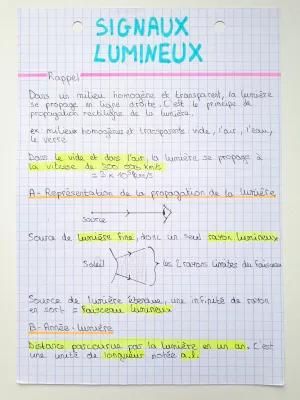 SIGNAUX
LUMINEUX
Rappel
Dans un milieu homogène et transparent, la lumière
se propage en ligne droite. C'est le principe de
propagation rectiligne de la lumière.
ex milieux homogènes et transparents vide, l'air, l'eau,
le verre
Dans le vide et dans l'air, la lumière se propage à
la vitesse de 300 000 km/s
= 3 x 10⁵ km/s
A - Représentation de la propagation de la lumière
source
Source de lumière fine, donc un seul rayon lumineux
Soleil
les 2 rayons limites du faisceau
Source de lumière étendue, une infinité de rayon
en sort = faisceau lumineux
B - Année-lumière
Distance parcourue par la lumière en un an. C'est
une unité de longueur notée a.l.